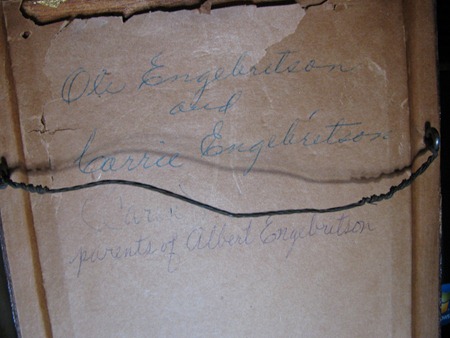 Ole Engebritson
and
Carrie Engebritson
parents of Albert Engebretson